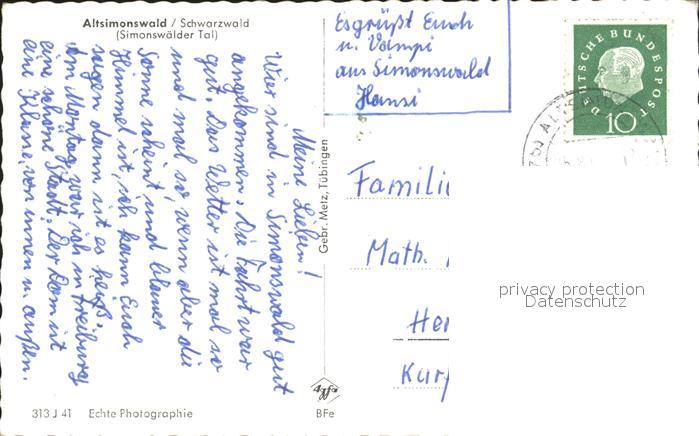 Altsimonswald / Schwarzwald
(Simonswälder Tal)
Meine Lieben!
Wir sind in Simonswald gut
angekommen. Die Fahrt war
gut. Das Wetter ist mal so
und mal so, wenn aber die
Sonne scheint und blauer
Himmel ist, ich kann Euch
sagen dann ist es heiß.
Am Montag war ich in Freiburg
eine schöne Stadt. Der Dom ist
eine Klasse, von innen u. außen.
313 J 41 Echte Photographie
Gebr. Metz, Tübingen
Agfa
BFe
Es grüßt Euch
u. Vampi
aus Simonswald
Hansi
DEUTSCHE BUNDESPOST
10
Familie
Math.
privacy protection
Datenschutz